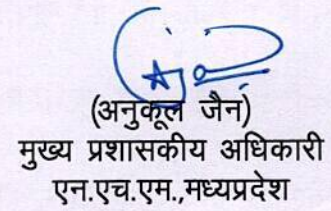 (अनुकूल जैन)
मुख्य प्रशासकीय अधिकारी
एन.एच.एम.,मध्यप्रदेश